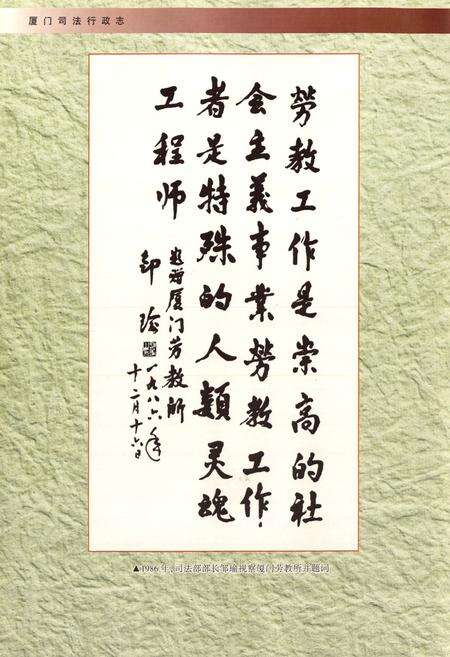 厦门司法行政志
勞教工作是崇高的社
会主義事業勞教工作
者是特殊的人類灵魂
工程师
题赠厦门劳教所
邹瑜
一九八六年
十二月十六日
▲1986年，司法部部长邹瑜视察厦门劳教所并题词